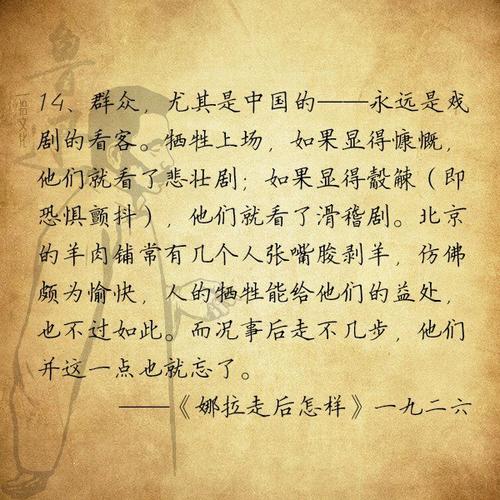 14、群众，尤其是中国的——永远是戏
剧的看客。牺牲上场，如果显得慷慨，
他们就看了悲壮剧；如果显得觳觫（即
恐惧颤抖），他们就看了滑稽剧。北京
的羊肉铺常有几个人张嘴胶剥羊，仿佛
颇为愉快，人的牺牲能给他们的益处，
也不过如此。而况事后走不几步，他们
并这一点也就忘了。
——《娜拉走后怎样》一九二六
鲁
一拾文化